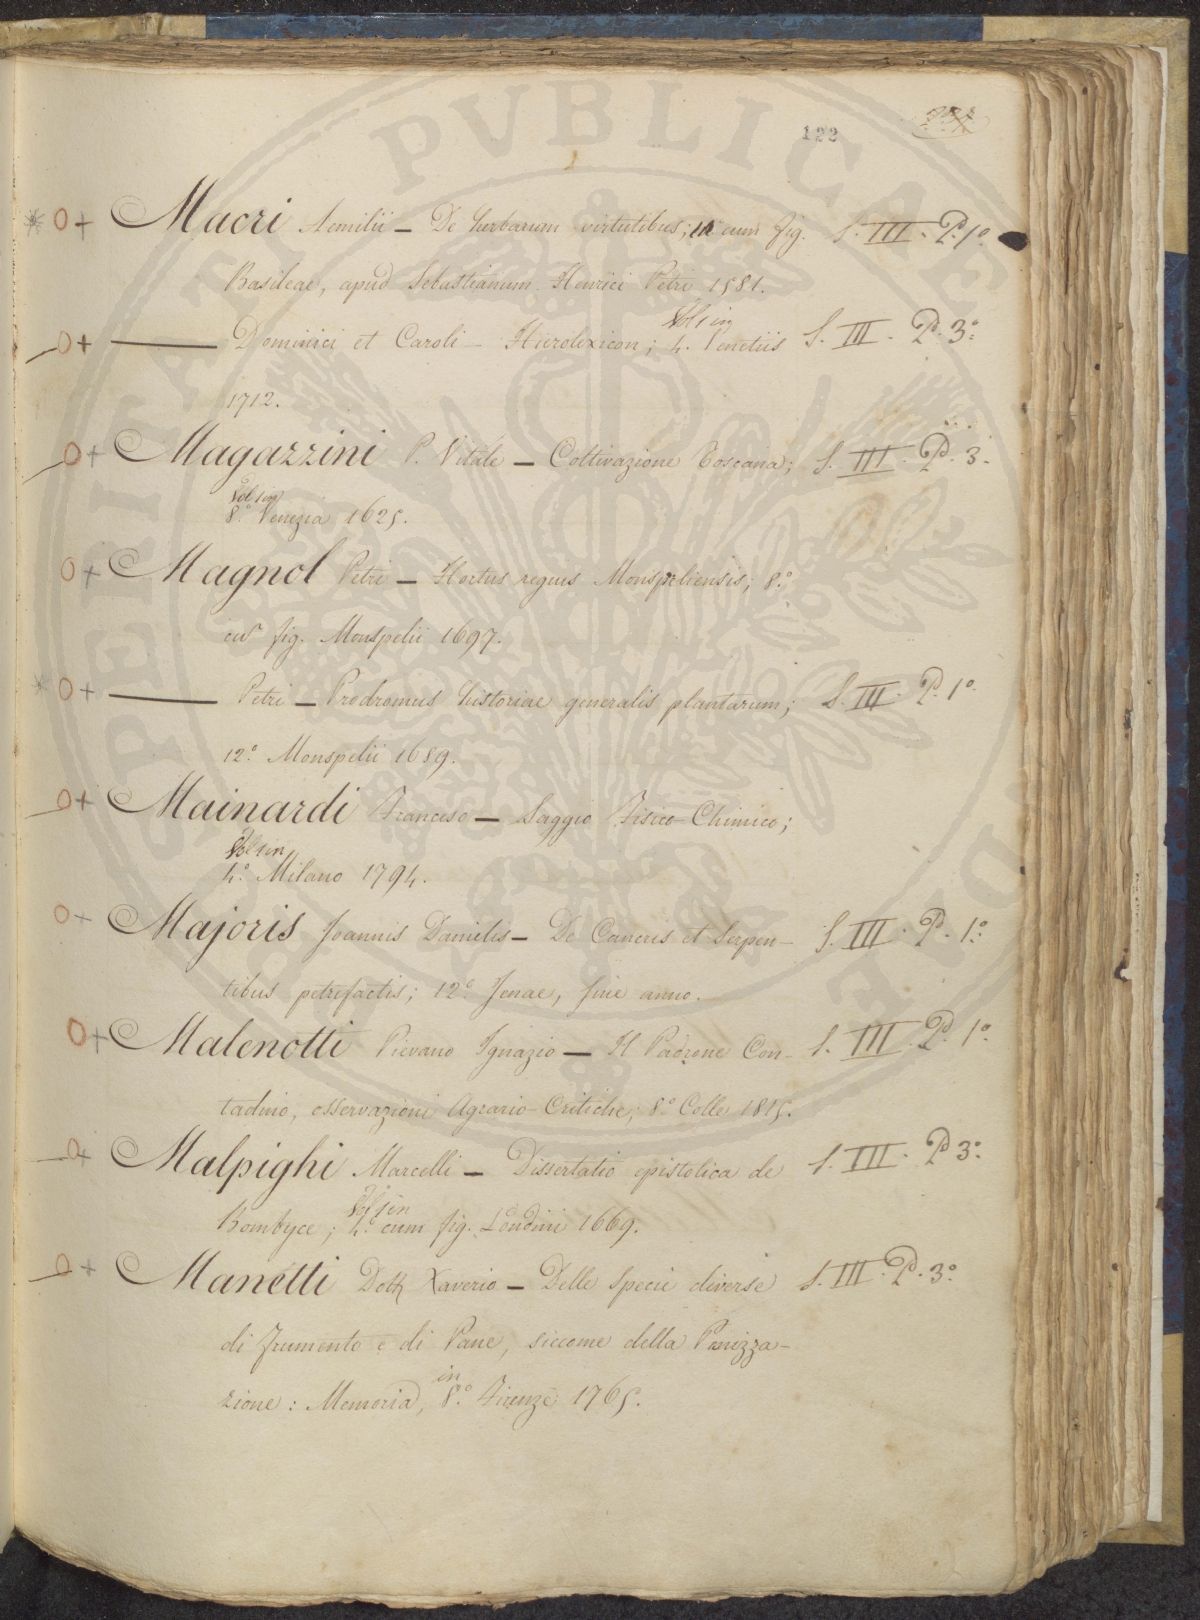 122
Macri Aemilii — De herbarum virtutibus; in cum fig. S. III. P. 1.º
Basileae, apud Sebastianum Henrici Petri 1581.
Vol 1 in
Dominici et Caroli — Hierolexicon; 4. Venetiis S. III. P. 3.º
1712.
Magazzini P. Vitale — Coltivazione Toscana; S. III. P. 3.
Vol 1 in
8.º Venezia 1625.
Magnol Petri — Hortus regius Monspeliensis; 8.º
cu fig. Monspelii 1697.
Petri — Prodromus historiae generalis plantarum; S. III. P. 1.º
12.º Monspelii 1689.
Mainardi Francesco — Saggio Fisico-Chimico;
Vol 1 in
4.º Milano 1794.
Majoris Joannis Danielis — De Cancris et Serpen- S. III. P. 1.º
tibus petrefactis; 12.º Jenae, sine anno.
Malenotti Pievano Ignazio — Il Padrone Con- S. III. P. 1.º
tadino, osservazioni Agrario-Critiche; 8.º Colle 1815.
Malpighi Marcelli — Dissertatio epistolica de S. III. P. 3.º
Vol 1 in
Bombyce; 4.º cum fig. Londini 1669.
Manetti Dott. Xaverio — Delle specie diverse S. III. P. 3.º
di frumento e di Pane, siccome della Panizza-
in
zione: Memoria, 8.º Firenze 1765.
PERITATI PVBLICAE